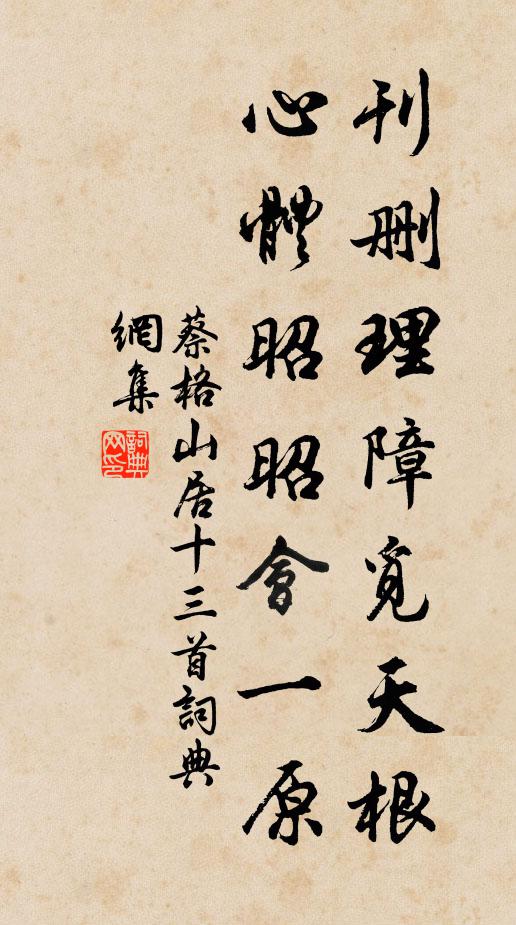 刊删理障覓天根
心體昭昭會一原
蔡格山居十三首詞典
網集
詞典網印